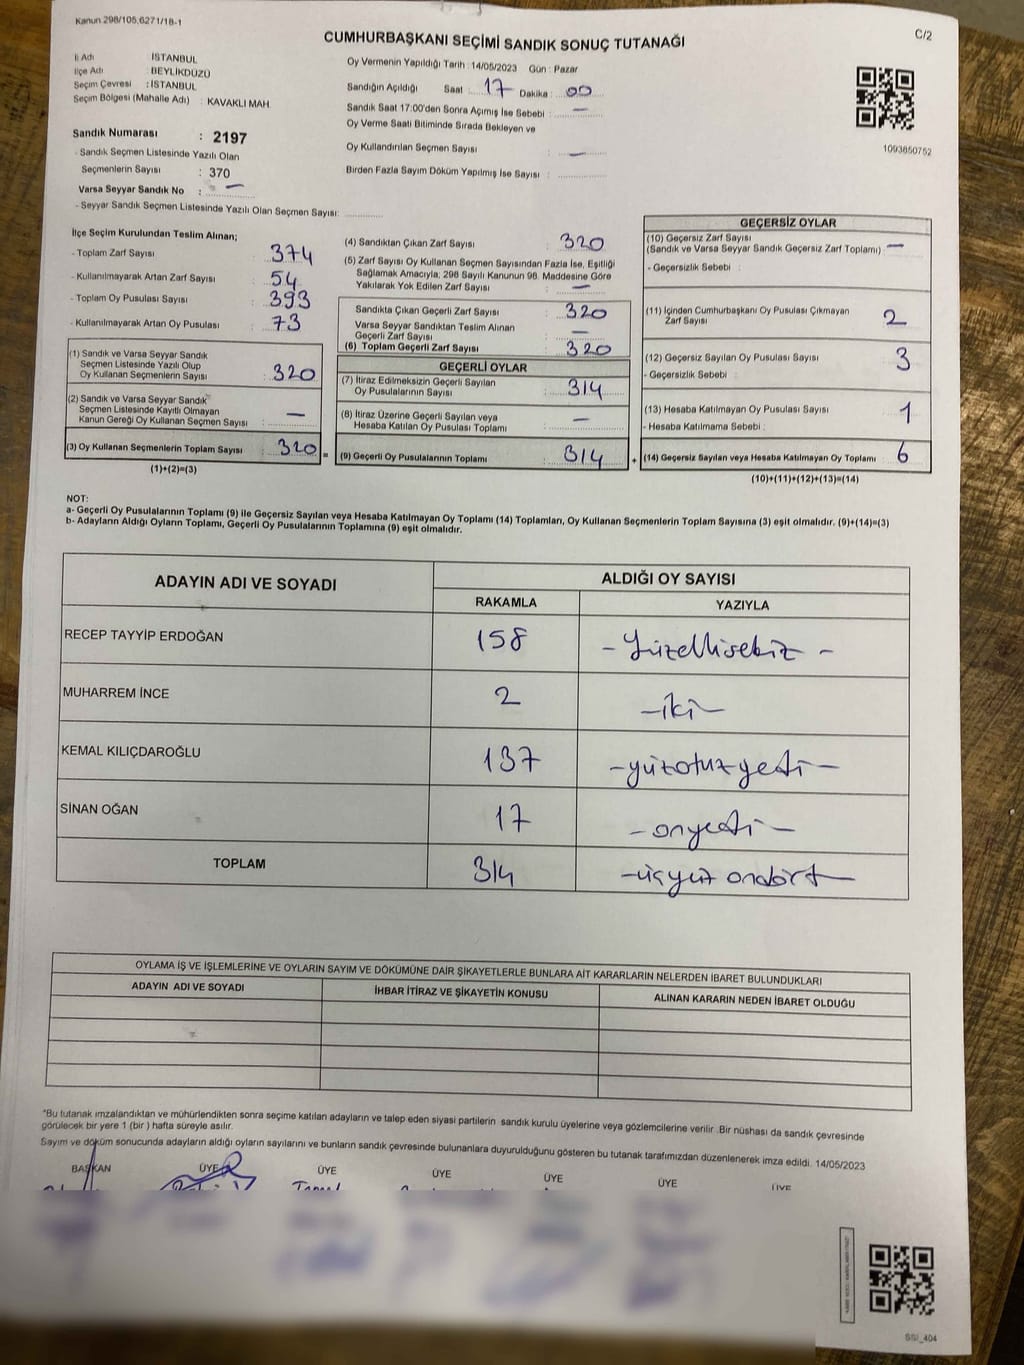 Kanun 298/105,6271/18-1
C/2
CUMHURBAŞKANI SEÇİMİ SANDIK SONUÇ TUTANAĞI
İl Adı : İSTANBUL
İlçe Adı : BEYLİKDÜZÜ
Seçim Çevresi : İSTANBUL
Seçim Bölgesi (Mahalle Adı) : KAVAKLI MAH.
Oy Vermenin Yapıldığı Tarih : 14/05/2023 Gün : Pazar
Sandığın Açıldığı Saat : 17 Dakika : 00
Sandık Saat 17:00'den Sonra Açımış İse Sebebi : —
Oy Verme Saati Bitiminde Sırada Bekleyen ve
Oy Kullandırılan Seçmen Sayısı : —
Birden Fazla Sayım Döküm Yapılmış İse Sayısı :
1093650752
Sandık Numarası : 2197
- Sandık Seçmen Listesinde Yazılı Olan
Seçmenlerin Sayısı : 370
Varsa Seyyar Sandık No : —
- Seyyar Sandık Seçmen Listesinde Yazılı Olan Seçmen Sayısı:
İlçe Seçim Kurulundan Teslim Alınan;
- Toplam Zarf Sayısı : 374
- Kullanılmayarak Artan Zarf Sayısı : 54
- Toplam Oy Pusulası Sayısı : 393
- Kullanılmayarak Artan Oy Pusulası : 73
(1) Sandık ve Varsa Seyyar Sandık
Seçmen Listesinde Yazılı Olup
Oy Kullanan Seçmenlerin Sayısı : 320
(2) Sandık ve Varsa Seyyar Sandık
Seçmen Listesinde Kayıtlı Olmayan
Kanun Gereği Oy Kullanan Seçmen Sayısı : —
(3) Oy Kullanan Seçmenlerin Toplam Sayısı : 320 =
(1)+(2)=(3)
(4) Sandıktan Çıkan Zarf Sayısı : 320
(5) Zarf Sayısı Oy Kullanan Seçmen Sayısından Fazla İse, Eşitliği
Sağlamak Amacıyla; 298 Sayılı Kanunun 98. Maddesine Göre
Yakılarak Yok Edilen Zarf Sayısı : —
Sandıkta Çıkan Geçerli Zarf Sayısı : 320
Varsa Seyyar Sandıktan Teslim Alınan
Geçerli Zarf Sayısı : —
(6) Toplam Geçerli Zarf Sayısı : 320
GEÇERLİ OYLAR
(7) İtiraz Edilmeksizin Geçerli Sayılan
Oy Pusulalarının Sayısı : 314
(8) İtiraz Üzerine Geçerli Sayılan veya
Hesaba Katılan Oy Pusulası Toplamı : —
(9) Geçerli Oy Pusulalarının Toplamı : 314 +
GEÇERSİZ OYLAR
(10) Geçersiz Zarf Sayısı
(Sandık ve Varsa Seyyar Sandık Geçersiz Zarf Toplamı) : —
- Geçersizlik Sebebi :
(11) İçinden Cumhurbaşkanı Oy Pusulası Çıkmayan
Zarf Sayısı : 2
(12) Geçersiz Sayılan Oy Pusulası Sayısı : 3
- Geçersizlik Sebebi :
(13) Hesaba Katılmayan Oy Pusulası Sayısı : 1
- Hesaba Katılmama Sebebi :
(14) Geçersiz Sayılan veya Hesaba Katılmayan Oy Toplamı : 6
(10)+(11)+(12)+(13)=(14)
NOT:
a- Geçerli Oy Pusulalarının Toplamı (9) ile Geçersiz Sayılan veya Hesaba Katılmayan Oy Toplamı (14) Toplamları, Oy Kullanan Seçmenlerin Toplam Sayısına (3) eşit olmalıdır. (9)+(14)=(3)
b- Adayların Aldığı Oyların Toplamı, Geçerli Oy Pusulalarının Toplamına (9) eşit olmalıdır.
ADAYIN ADI VE SOYADI
ALDIĞI OY SAYISI
RAKAMLA YAZIYLA
RECEP TAYYİP ERDOĞAN 158 - Yüzellisekiz -
MUHARREM İNCE 2 - iki -
KEMAL KILIÇDAROĞLU 137 - yüzotuzyedi -
SİNAN OĞAN 17 - onyedi -
TOPLAM 314 - üçyüz ondört -
OYLAMA İŞ VE İŞLEMLERİNE VE OYLARIN SAYIM VE DÖKÜMÜNE DAİR ŞİKAYETLERLE BUNLARA AİT KARARLARIN NELERDEN İBARET BULUNDUKLARI
ADAYIN ADI VE SOYADI İHBAR İTİRAZ VE ŞİKAYETİN KONUSU ALINAN KARARIN NEDEN İBARET OLDUĞU
*Bu tutanak imzalandıktan ve mühürlendikten sonra seçime katılan adayların ve talep eden siyasi partilerin sandık kurulu üyelerine veya gözlemcilerine verilir .Bir nüshası da sandık çevresinde
görülecek bir yere 1 (bir ) hafta süreyle asılır.
Sayım ve döküm sonucunda adayların aldığı oyların sayılarını ve bunların sandık çevresinde bulunanlara duyurulduğunu gösteren bu tutanak tarafımızdan düzenlenerek imza edildi. 14/05/2023
BAŞKAN ÜYE ÜYE ÜYE ÜYE ÜYE ÜYE
SSI_404